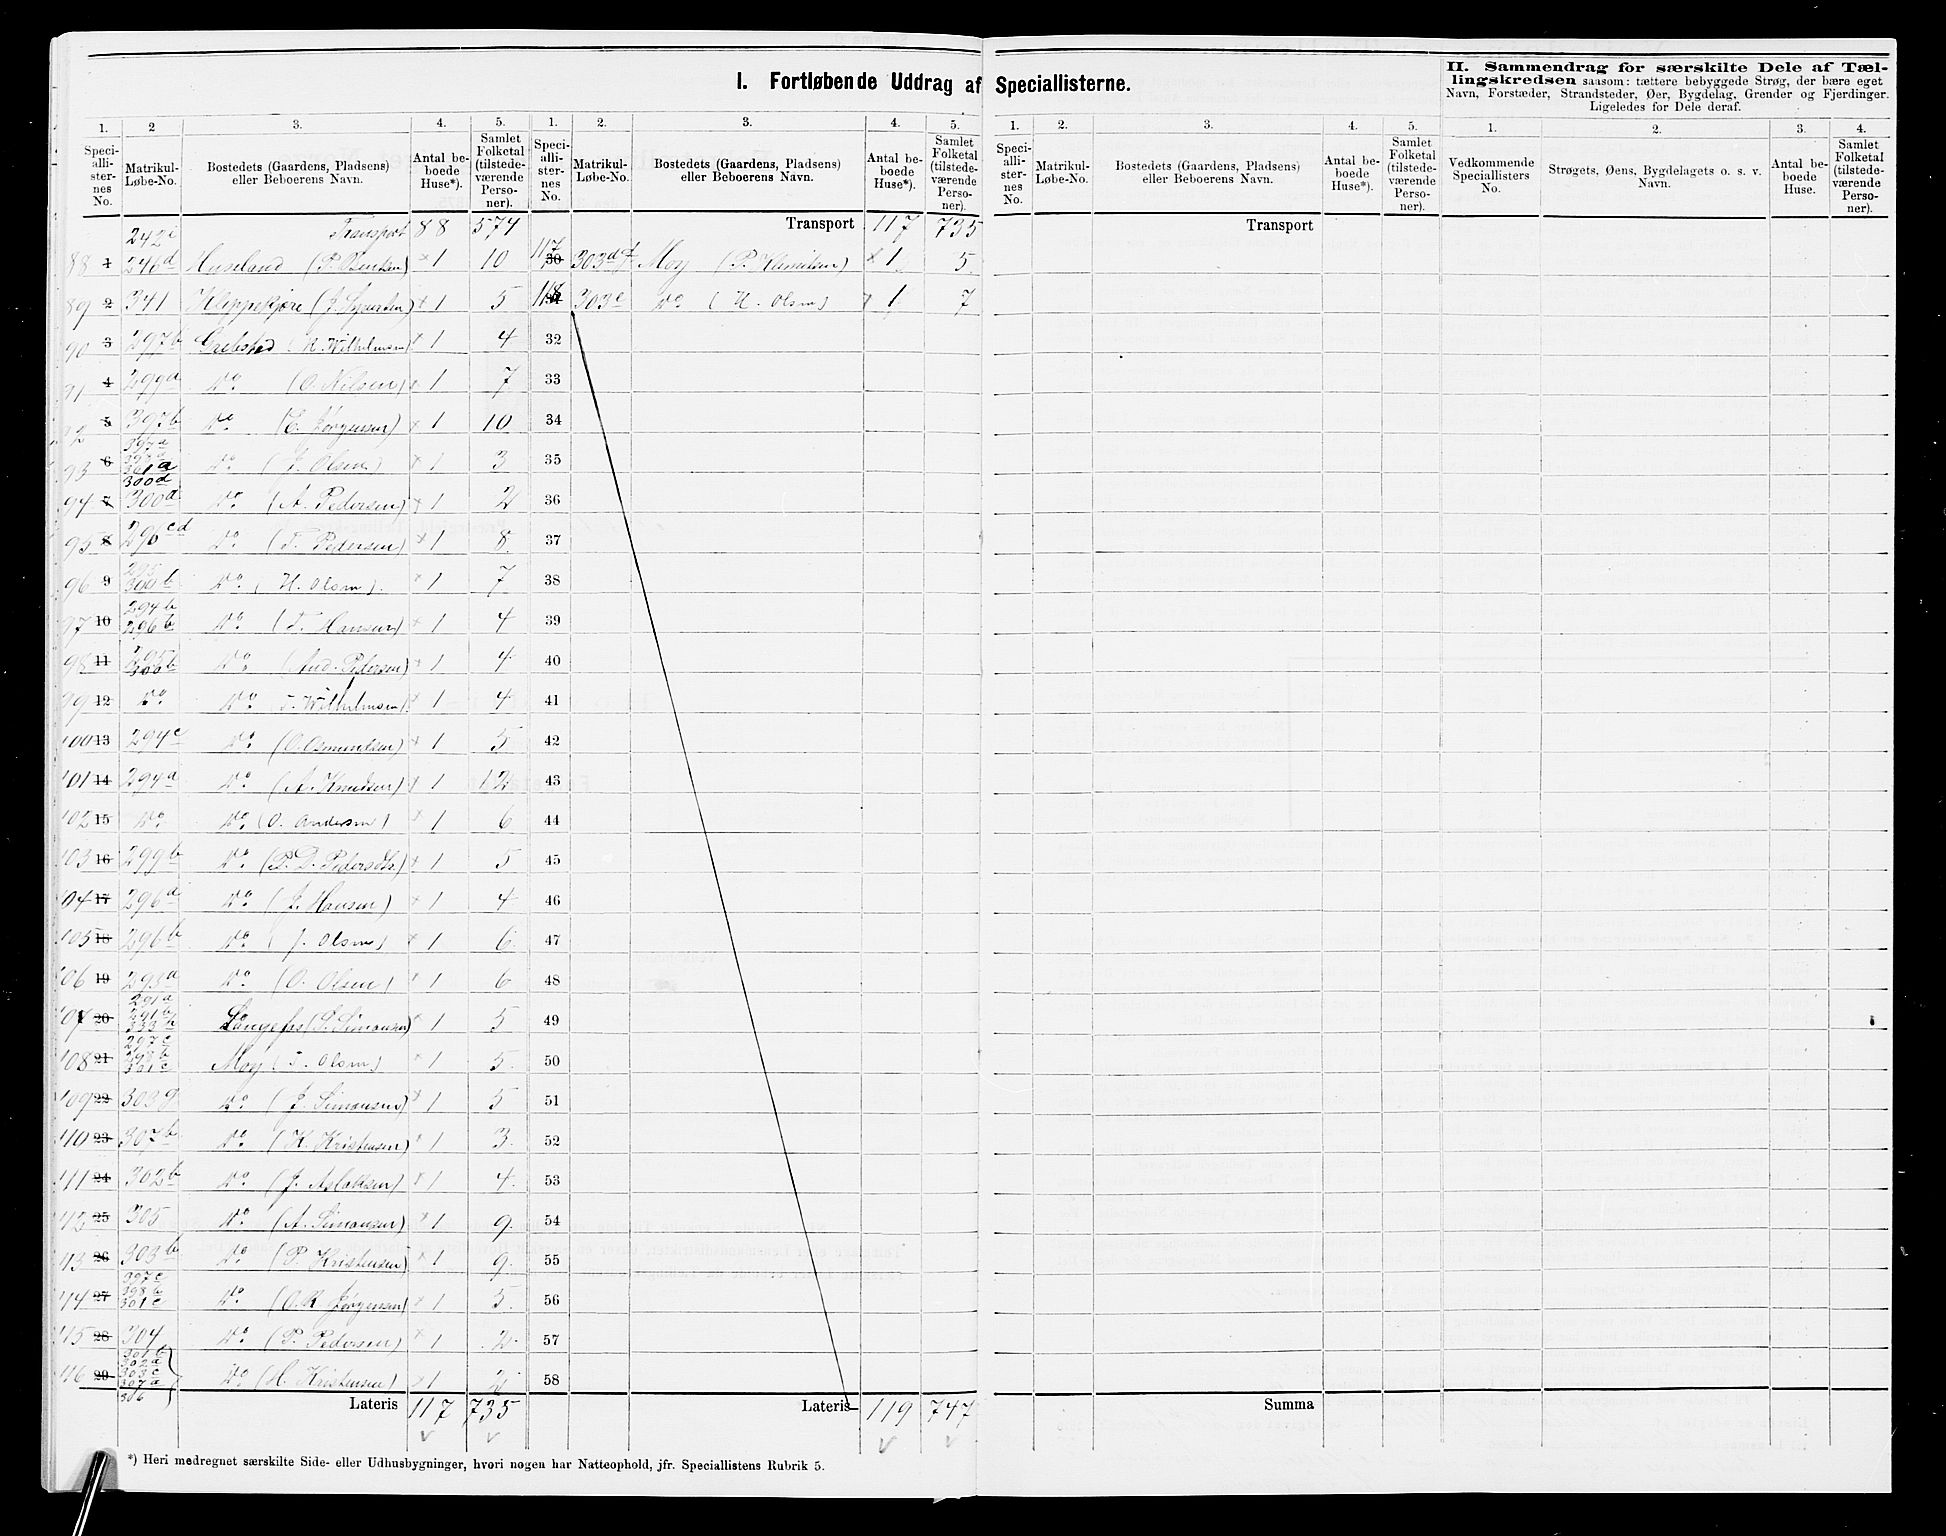 I. Fortløbende Uddrag af Speciallisterne.
II. Sammendrag for særskilte Dele af Tæl-
lingskredsen saasom: tættere bebyggede Strøg, der bære eget
Navn, Forstæder, Strandsteder, Øer, Bygdelag, Grender og Fjerdinger.
Ligeledes for Dele deraf.
1. 2 3. 4. 5. 1. 2. 3. 4. 5. 1. 2. 3. 4. 5. 1. 2. 3. 4.
Speci-
alli-
ster-
nes
No.
Matrikul-
Løbe-No.
Bostedets (Gaardens, Pladsens)
eller Beboerens Navn.
Antal be-
boede
Huse*).
Samlet
Folketal
(tilstede-
værende
Perso-
ner).
Speci-
alli-
ster-
nes
No.
Matrikul-
Løbe-No.
Bostedets (Gaardens, Pladsens)
eller Beboerens Navn.
Antal be-
boede
Huse*).
Samlet
Folketal
(tilstede-
værende
Perso-
ner).
Speci-
alli-
ster-
nes
No.
Matrikul-
Løbe-No.
Bostedets (Gaardens, Pladsens)
eller Beboerens Navn.
Antal be-
boede
Huse*).
Samlet
Folketal
(tilstede-
værende
Perso-
ner).
Vedkommende
Speciallisters
No.
Strøgets, Øens, Bygdelagets o. s. v.
Navn.
Antal be-
boede
Huse.
Samlet
Folketal
(tilstede-
værende
Perso-
ner).
Transport 88 574 Transport 117 735 Transport
242c
88 1 246d Huseland (P. Bentsen) × 1 10 117 30 303d Moy (P. ) × 1 5
89 2 341 Klippekjære (J. ) × 1 5 118 303e Do (H. Olsen) × 1 7
90 3 297b Grebstad (N. Wilhelmsen) × 1 4 32
91 4 299a Do (O. Nilsen) × 1 7 33
92 5 397b Do (C. Jørgensen) × 1 10 34
397a
398a
93 6 361a Do (J. Olsen) × 1 3 35
300d
94 7 300a Do (A. Pedersen) × 1 2 36
95 8 296cd Do (T. Pedersen) × 1 8 37
295
96 9 300b Do (H. Olsen) × 1 7 38
294b
97 10 296b Do (T. Hansen) × 1 4 39
295
98 11 300b Do (And. Pedersen) × 1 4 40
99 12 Do Do T. Wilhelmsen) × 1 4 41
100 13 294c Do (O. Osmundsen) × 1 5 42
101 14 294a Do (A. Knudsen) × 1 12 43
102 15 Do Do (O. Andersen) × 1 6 44
103 16 299b Do (P. D. Pedersdtr.) × 1 5 45
104 17 296a Do (J. Hansen) × 1 4 46
105 18 296b Do (J. Olsen) × 1 6 47
106 19 293a Do (O. Olsen) × 1 6 48
291a
291b
107 20 333b Langefos (S. Simonsen) × 1 5 49
297c
298b
108 21 301c Moy (T. Olsen) × 1 5 50
109 22 303g Do (J. Simonsen) × 1 5 51
110 23 307b Do (K. Kristensen) × 1 3 52
111 24 302b Do (J. Aslaksen) × 1 4 53
112 25 305 Do (A. Simonsen) × 1 9 54
113 26 303b Do (P. Kristensen) × 1 9 55
397c
398b
114 27 301e Do (O. R. Jørgensen) × 1 3 56
115 28 304 Do (P. Pedersen) × 1 2 57
301b
302a
303c
116 29 307a Do (H. Kristensen) × 1 2 58
306
Lateris 117 735 Lateris 119 747 Summa
*) Heri medregnet særskilte Side- eller Udhusbygninger, hvori nogen har Natteophold, jfr. Speciallistens Rubrik 5.